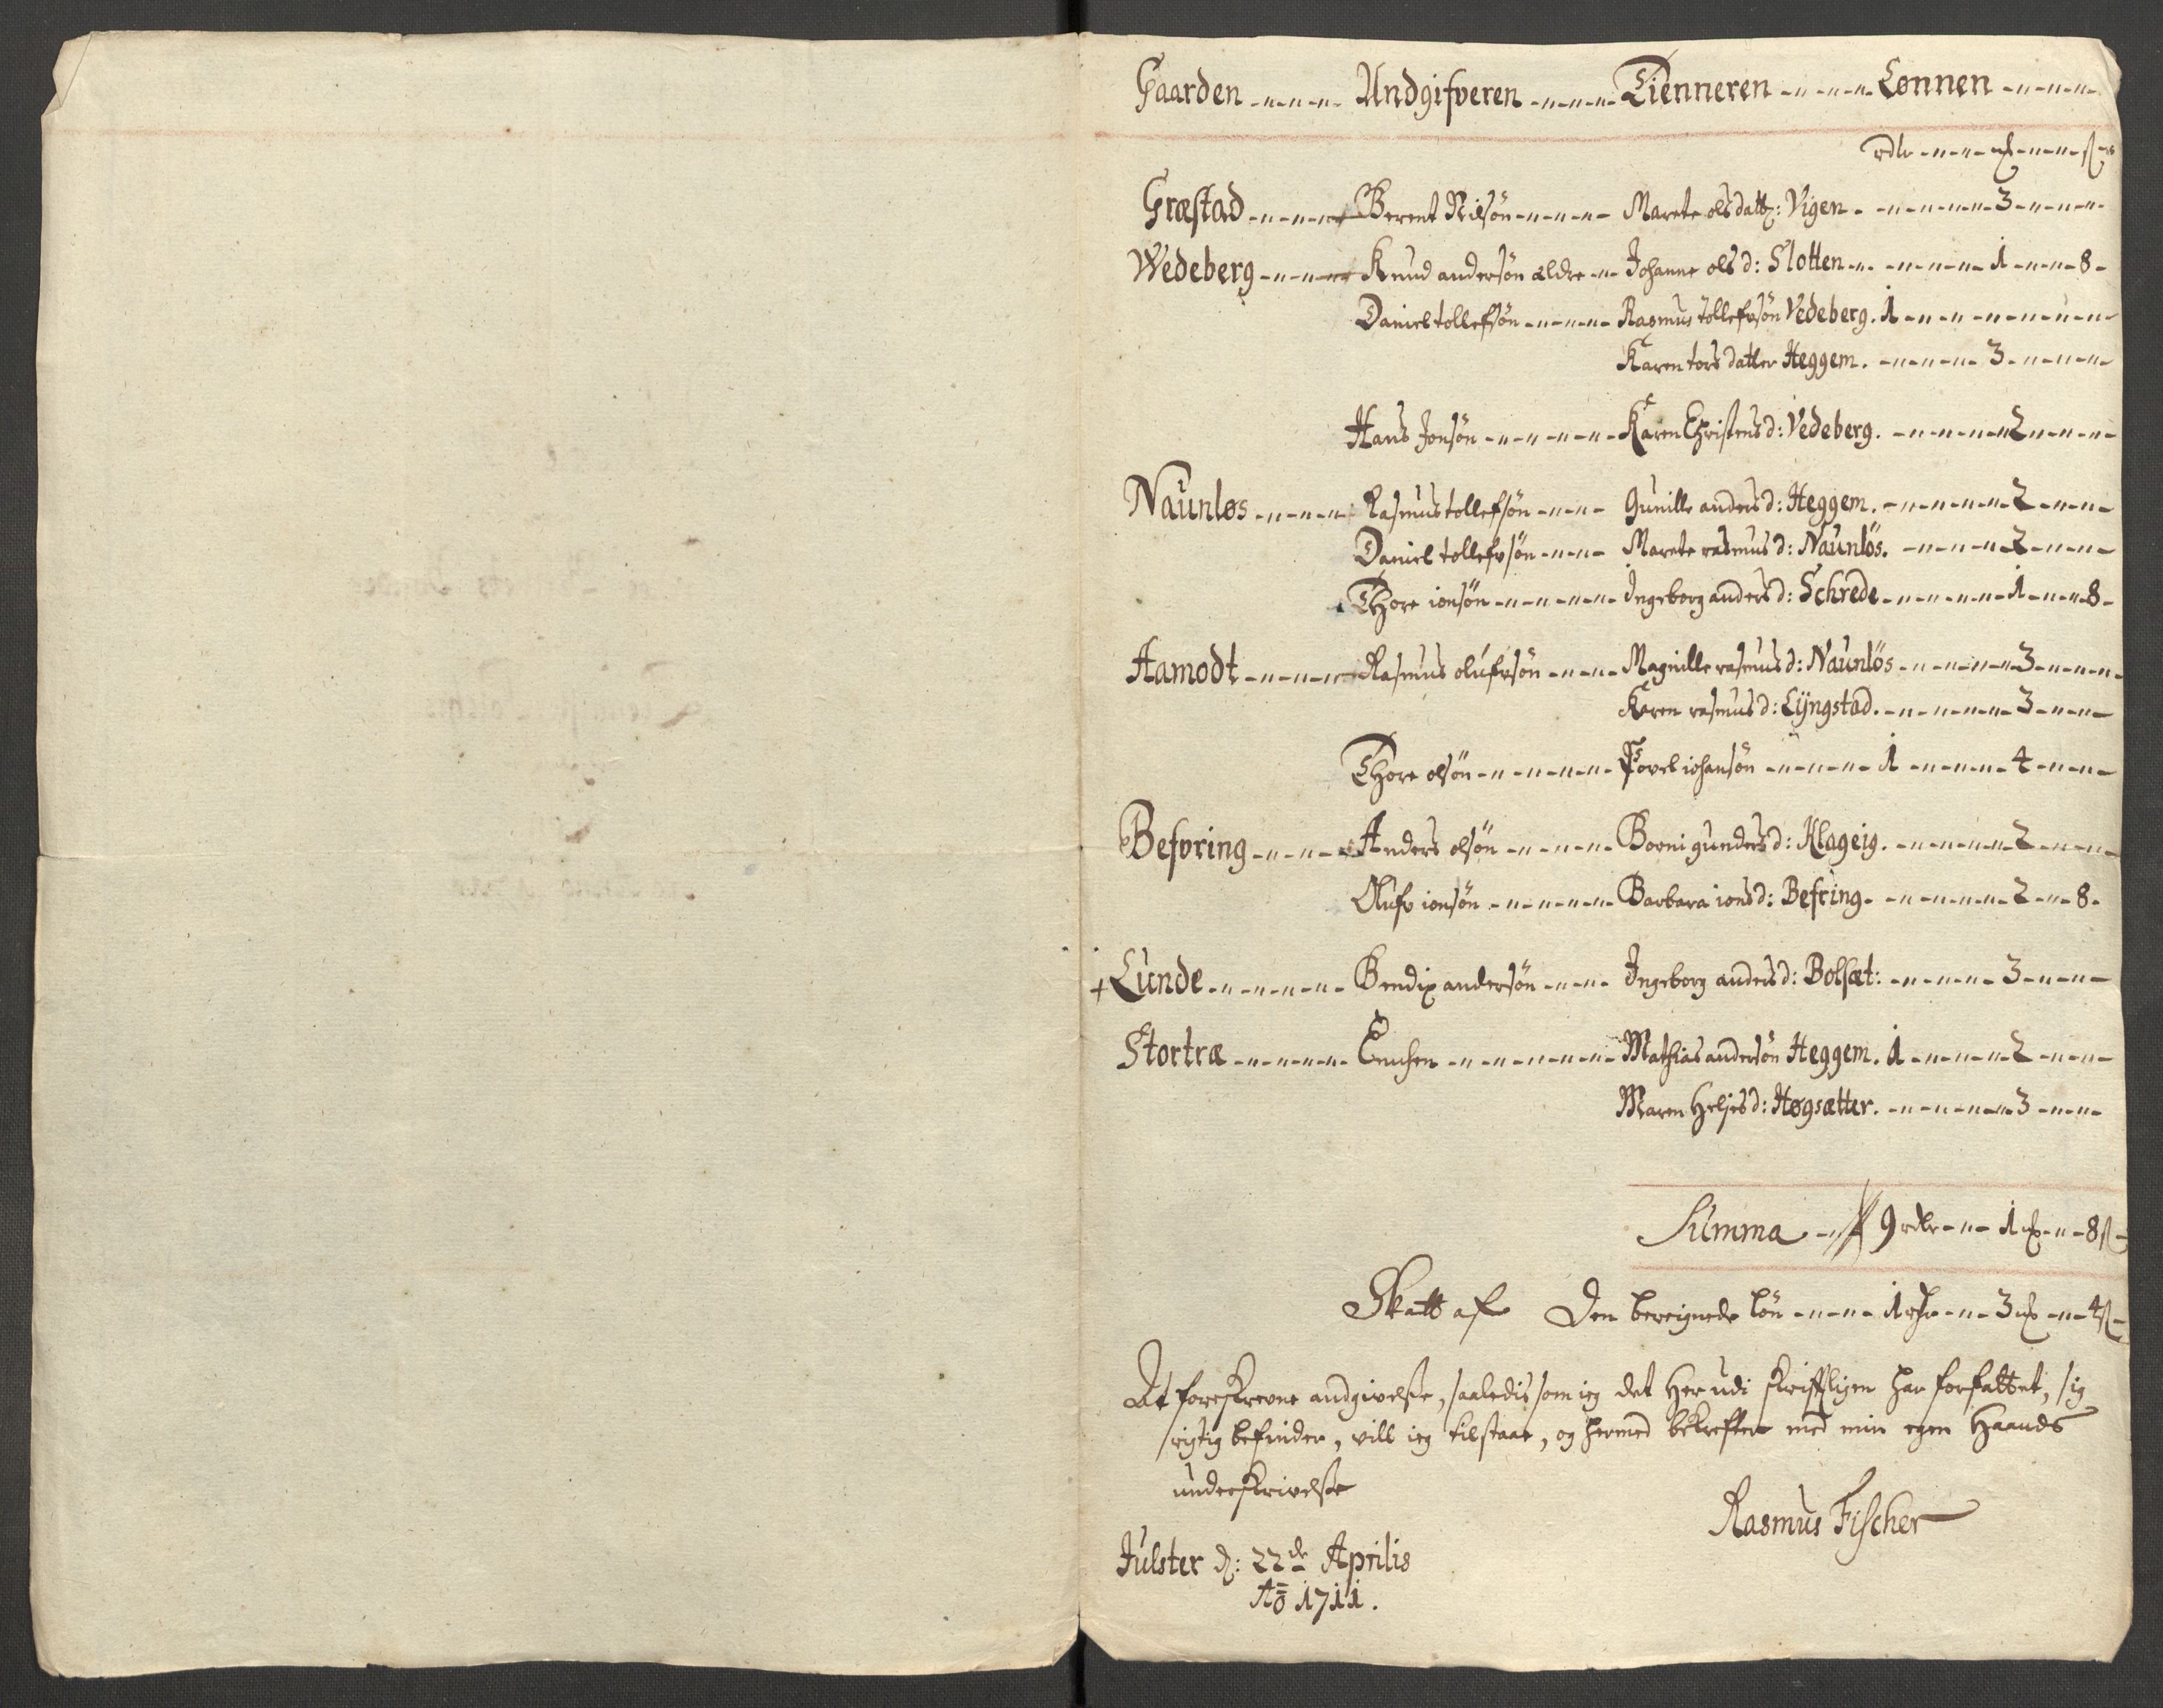 Gaarden Andgifveren Tienneren Lønnen
rdlr ß
Græstad Berent Nilsön Marete ols datt: Vigen. 3
Wedeberg Knud andersön ældre Johanne ols d: Slotten 1 8
Daniel tollefsön Rasmus tollefvsön Vedeberg. 1
Karen tors datter Heggem. 3
Hans Jonsön Karen Christens d: Vedeberg. 2
Naunløs Rasmus tollefsön Gunille anders d: Heggem. 2
Daniel tollefvsön Marete rasmus d: Naunlös. 2
Thore ionsön Ingeborg anders d: Schrede 1 8
Aamodt Rasmus olufvsön Magnille rasmus d: Naunlös 3
Karen rasmus d: Lÿngstad. 3
Thore olsön Povel iohansön 1 4
Befvring Anders olsön d: Klageig. 2
Olufv ionsön Barbara ions d: Befring. 2 8
+ Lunde Bendix andersön Ingeborg anders d: Bolsæt: 3
Stortræ Enchen Mathias andersön Heggem. 1 2
Maren Heljes d: Høgsætter. 3
Summa 9 rdlr 1 8 ß
Skatt af Den bereignede lön 1 rdr 3 4 ß
At foreskrevne andgivelsse, saaledis som ieg det her udi skrifftligen har forfattet, sig
rigtig befinder, vill ieg tilstaae, og hermed bekreffter med min egen Haands
underskrivelsse
Rasmus Fischer
Julster d: 22de Aprilis
Ao 1711.